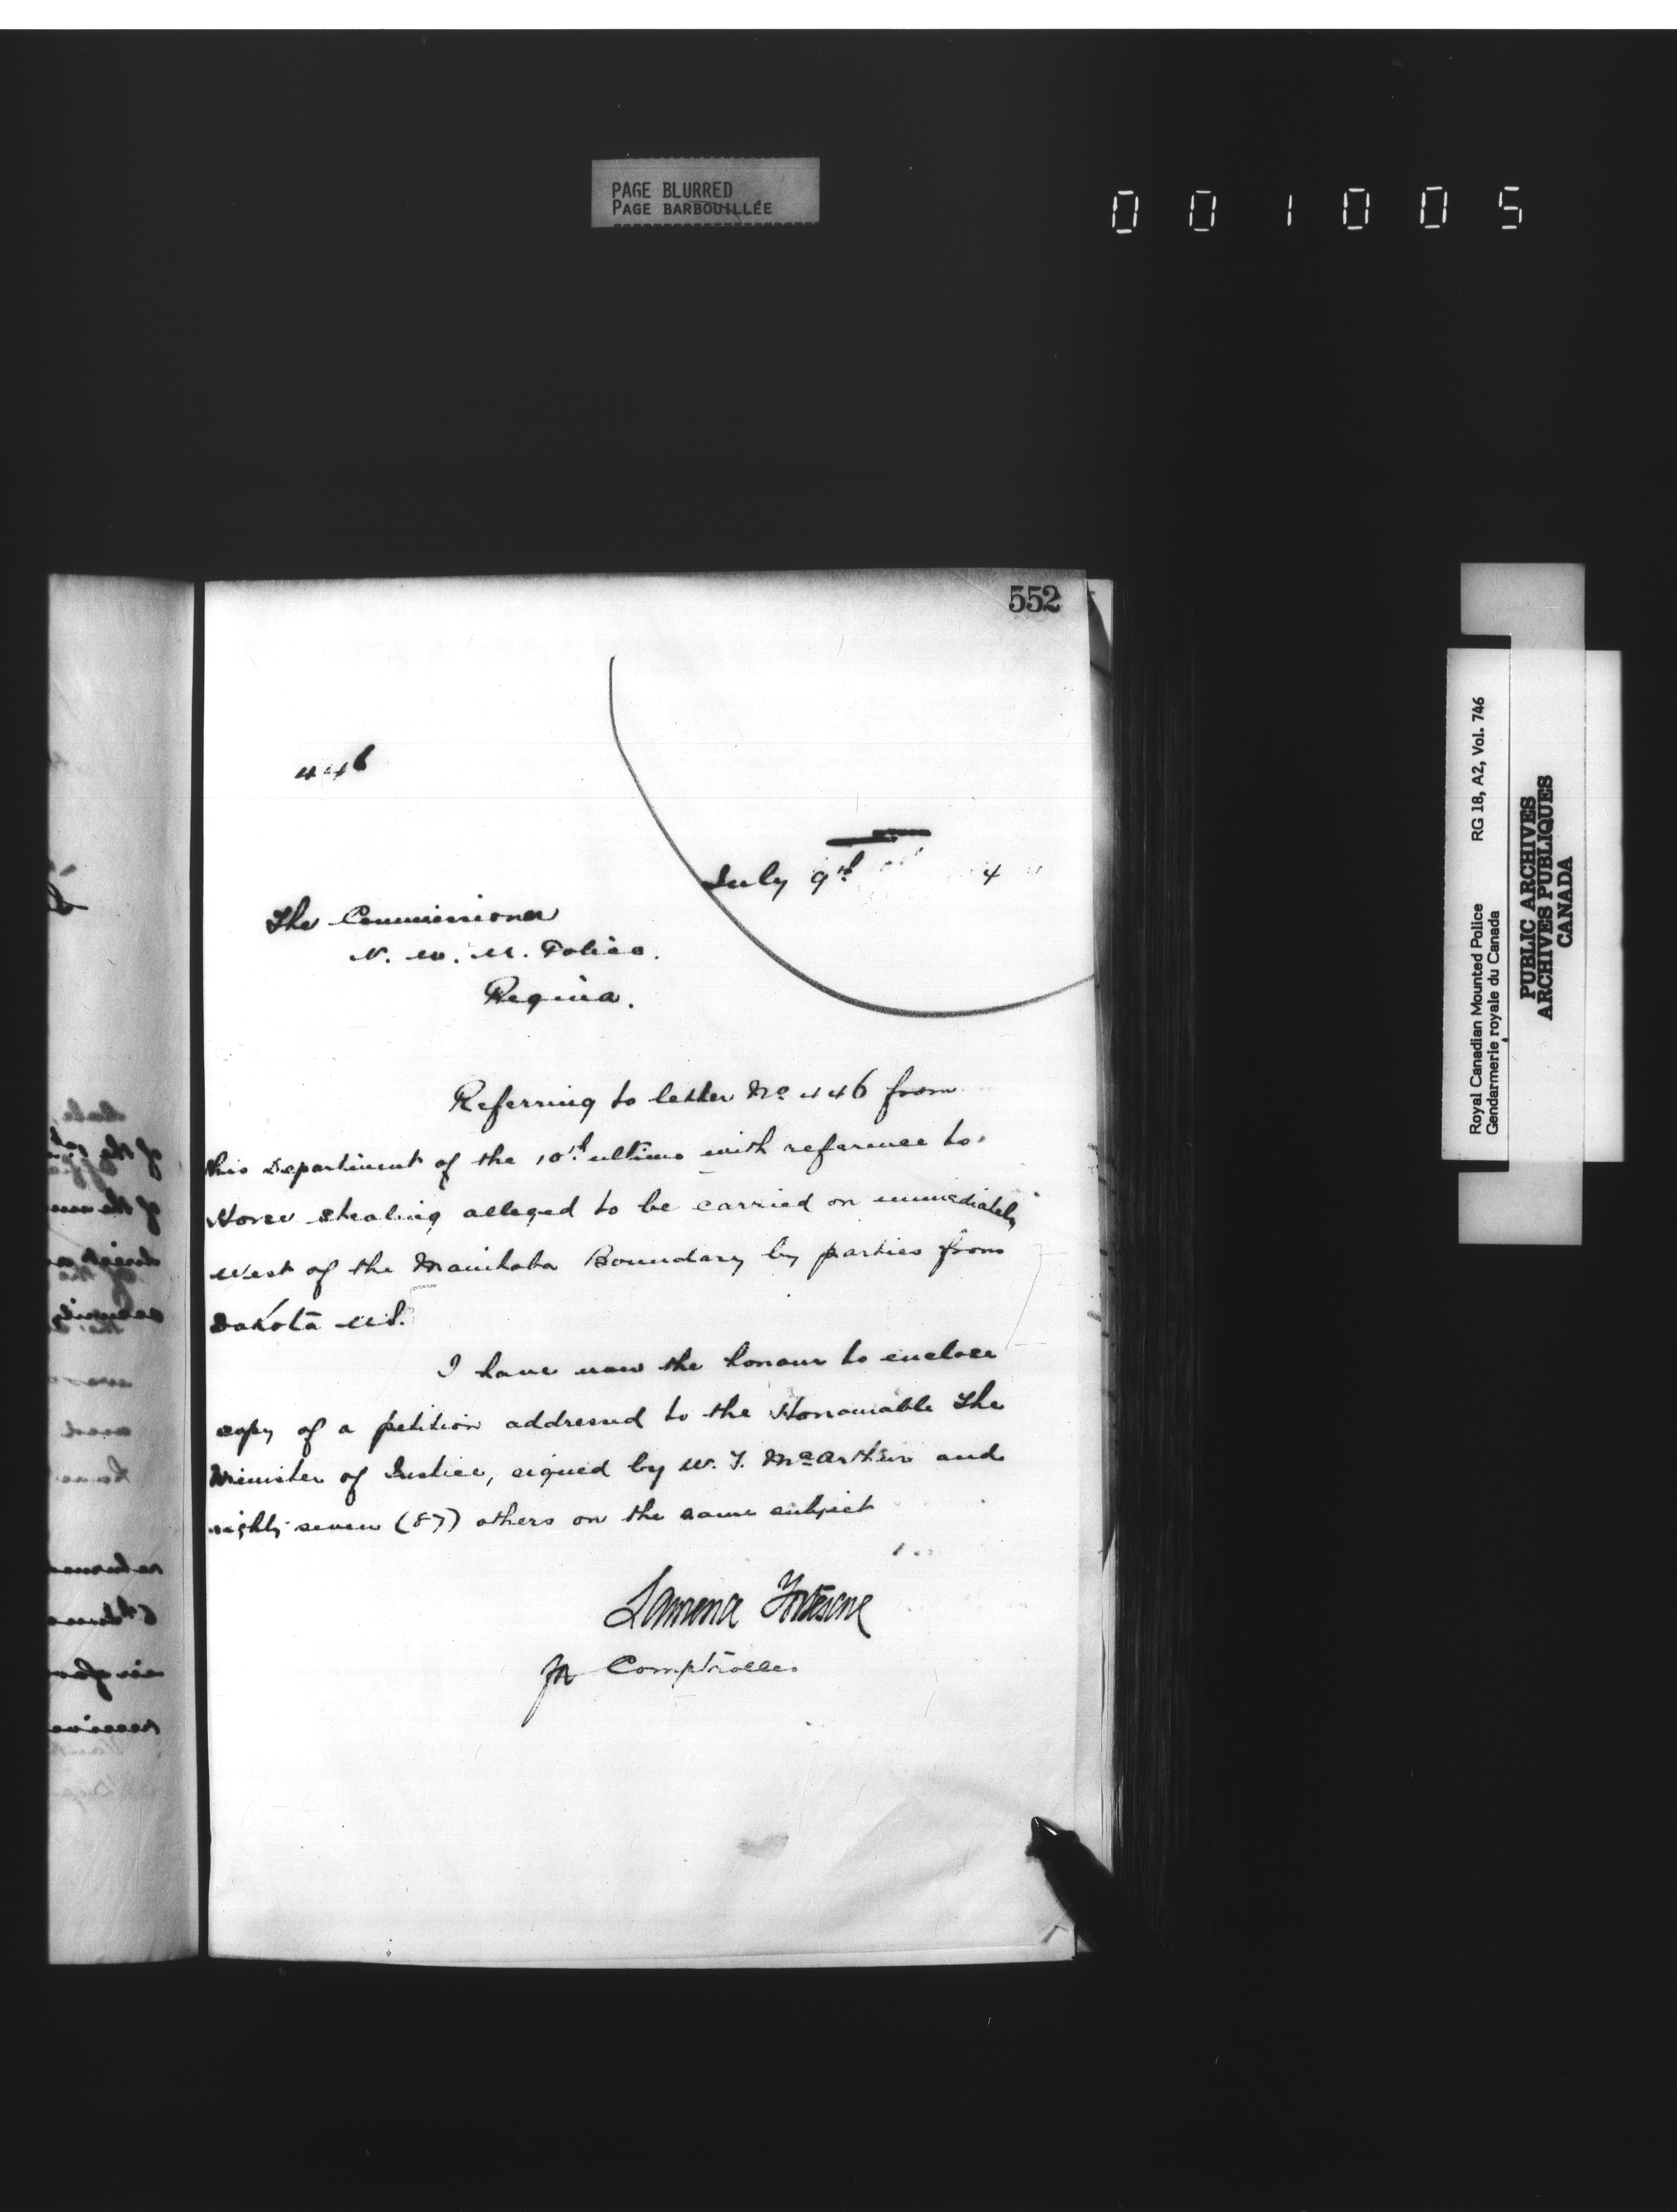 PAGE BLURRED
PAGE BARBOUILLÉE
001005
552
446
July 9th 4
The Commissioner
N. W. M. Police.
Regina.
Referring to letter No 446 from
this Department of the 10th ultimo with reference to
Horse stealing alleged to be carried on immediately
West of the Manitoba Boundary by parties from
Dakota U.S.
I have now the honour to enclose
copy of a petition addressed to the Honourable The
Minister of Justice, signed by W. T. McArthur and
eighty seven (87) others on the same subject
Lawrence Fortescue
for Comptroller
Royal Canadian Mounted Police RG 18, A2, Vol. 746
Gendarmerie royale du Canada
PUBLIC ARCHIVES
ARCHIVES PUBLIQUES
CANADA